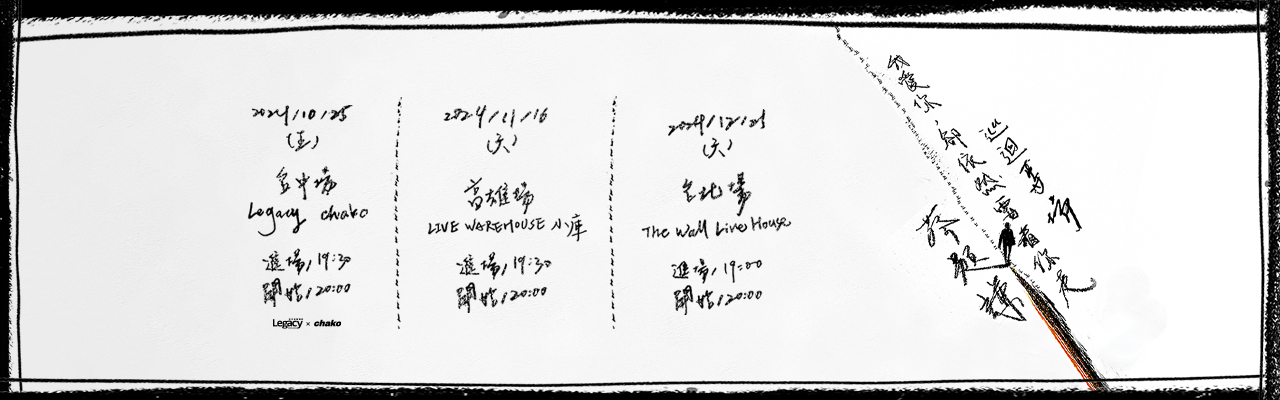 2024/10/25
(五)
台中場
Legacy chako
進場/19:30
開始/20:00
Legacy × chako
2024/11/16
(六)
高雄場
LIVE WAREHOUSE 小庫
進場/19:30
開始/20:00
2024/12/21
(六)
台北場
The Wall Live House
進場/19:00
開始/20:00
我愛你,卻依然
你走
巡迴專場